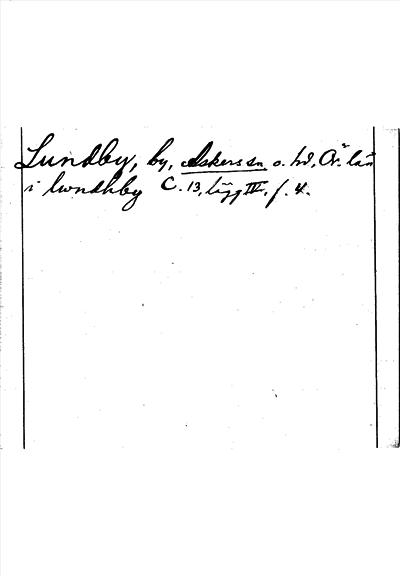 Lundby, by, Askers sn o. hd, Ör. län
i lwndhby C. 13, lägg IV, f. 4.